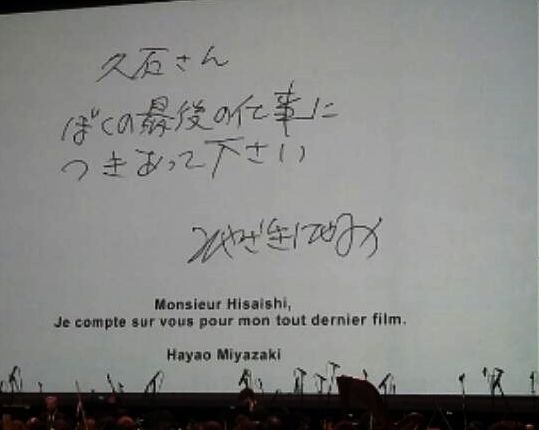 久石さん
ぼくの最後の仕事に
つきあって下さい
みやざきはやお
Monsieur Hisaishi,
Je compte sur vous pour mon tout dernier film.
Hayao Miyazaki